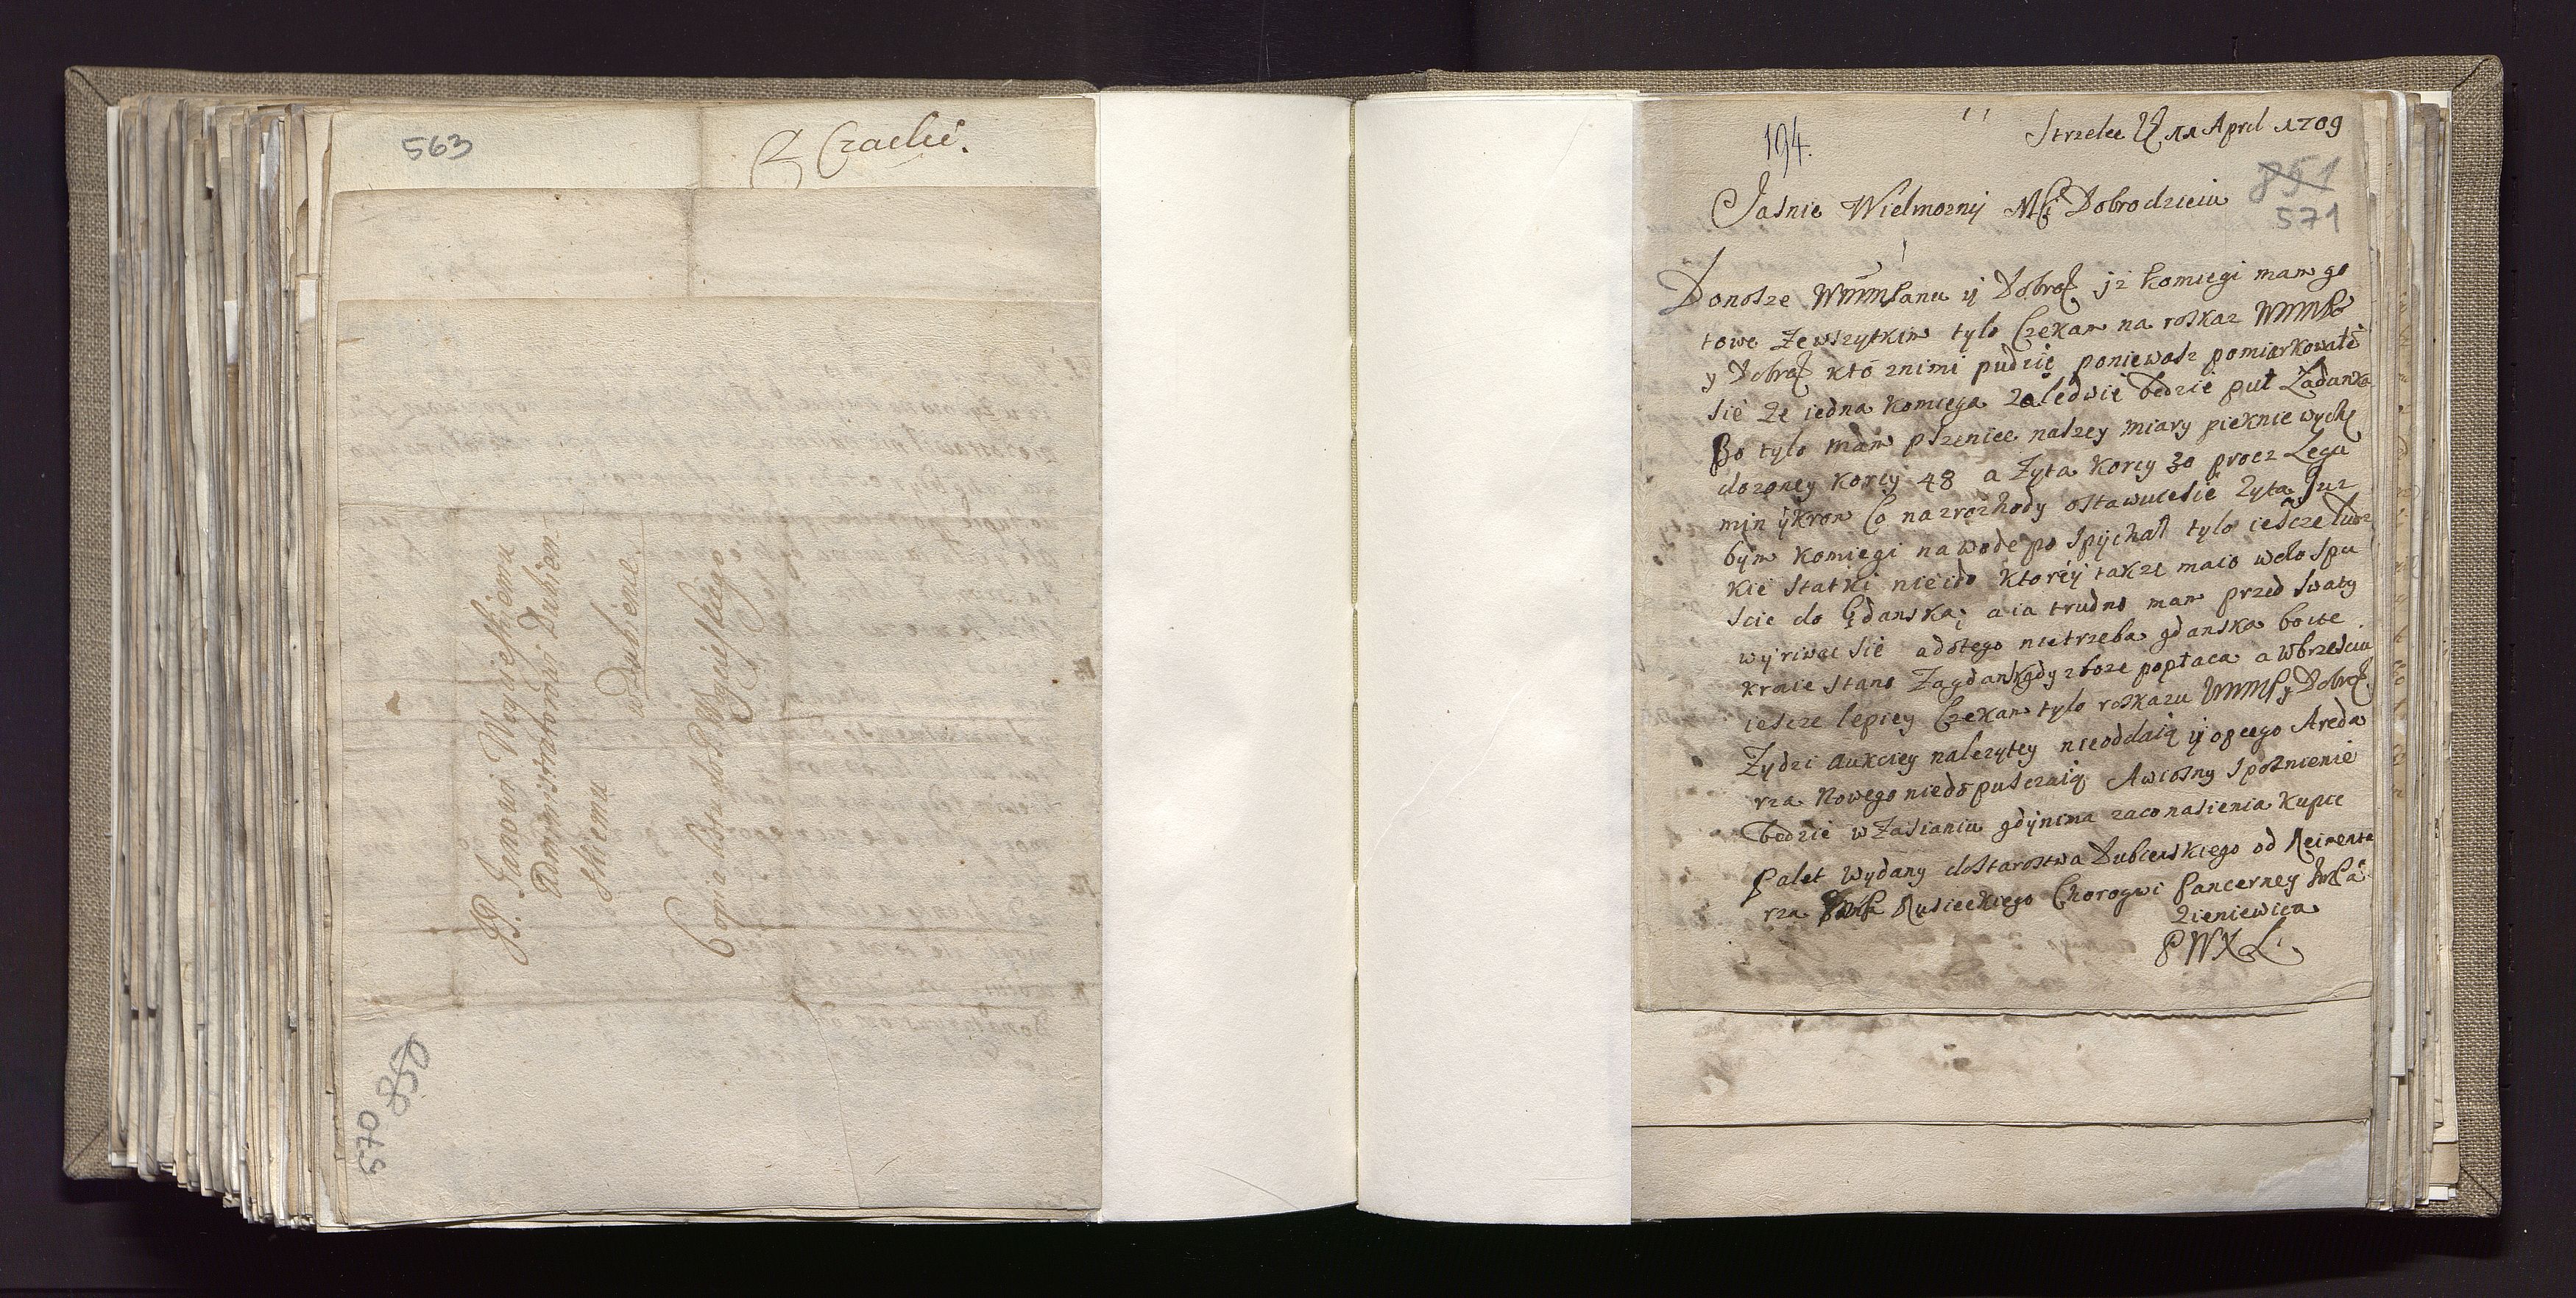 563
Z Czaclii.
JP. Janowi Węgierskiemu
Administratorowi Dubien
skiemu
wdubience.
Copia listu do P. Węgierskiego
570 850
194.
Strzelce 11 April 1709
851
571
Jasnie Wielmozny Mſ Dobrodzieiu
Donosze WMMPanu y Dobrͦ jz komiegi mam go
towe ze wszytkim tylo Czekam na roskaz WMMP
y Dobrͦ kto znimi pudzie poniewasz pomiarkowałe
sie ze iedna komiega zaledwie bedzie puł Ładunka
Bo tylo mam pszenice naszey miary pieknie wych
dozoney korcy 48 a Zyta korcy 30 procz Legu
min ykrom Co na rozhody ostawucesie Zyta Juz
bym komiegi na wode po Spychał tylo iescze Ludz
kie statki nieido ktorey takze maio welo spu
scie do Gdanska; a ia trudno mam przed swaty
wyriwac sie adotego nietrzeba gdanska bo we
kronie stano Zagdansk gdy zboze popłaca a Wbrzesciu
iescze lepiey Czekam tylo roskazu WMMP y Dobrͦ
Zydzi aukciey nalezytey nieoddaią y opcego Areda
rza Nowego niedopusczaią Awiosny spoznienie
bedzie w Zasianiu gdy nima zaco nasienia kupic
Palet wydany do Starostwa Dubienskiego od Reimenta
rza Rusieckiego Chorogwi Pancerney
Zieniewica
PWXL.